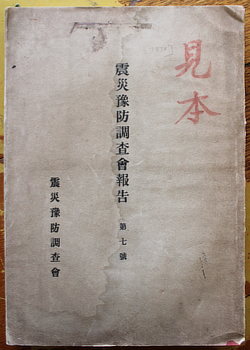 見本
震災豫防調查會報告 第七號
震災豫防調查會